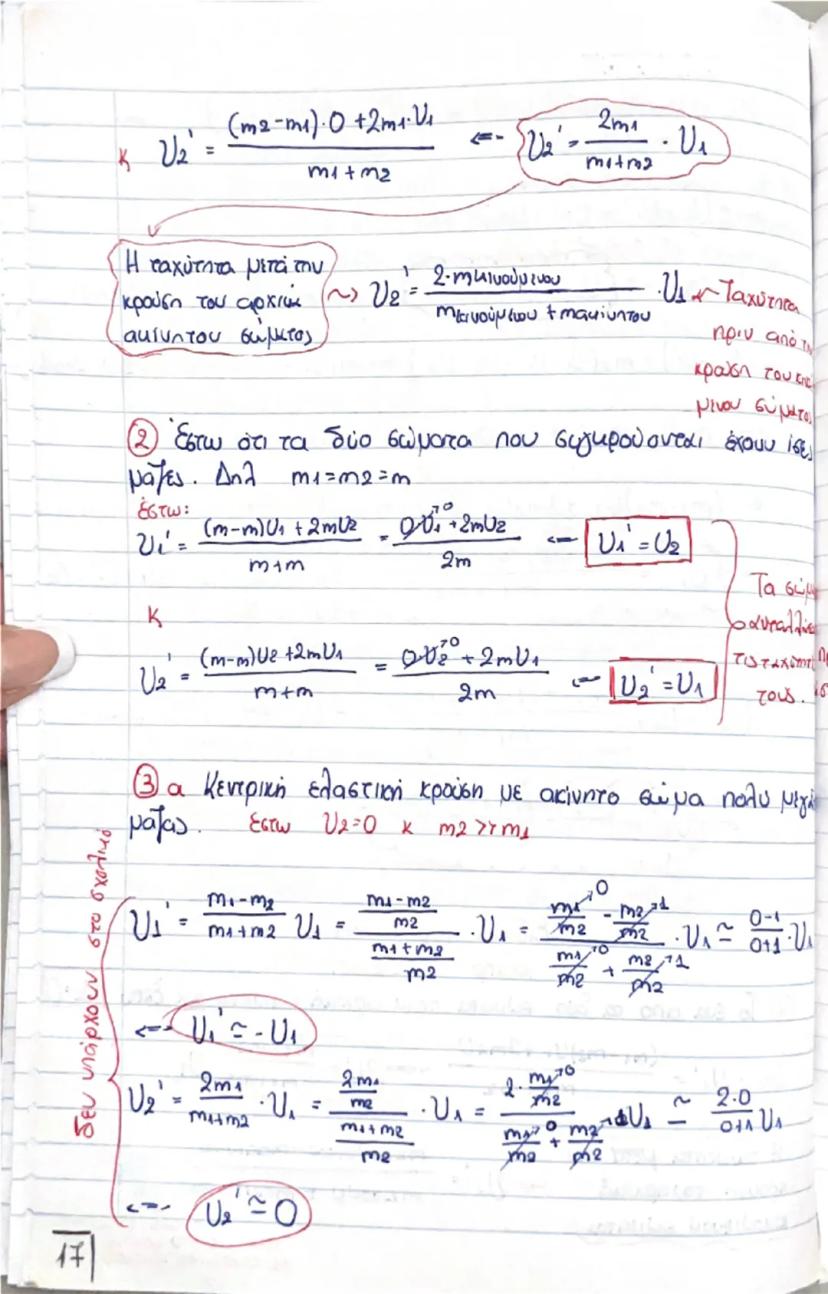 κ υ2' = (m2-m1)·0+2m1·υ1 / m1+m2 <=- υ2' = 2m1 / m1+m2 · υ1
Η ταχύτητα μετά την
κρούση του αρχικά
ακίνητου σώματος
~> υ2' = 2·mκινούμενου / mκινούμενου + mακίνητου · υ1
← Ταχύτητα
πριν από
κρούση του
σώματος
② Έστω ότι τα δύο σώματα που συγκρούονται έχουν ίσες
μάζες. Δηλ m1=m2=m
έστω:
υ1' = (m-m)υ1+2mυ2 / m+m = 0·υ1→0+2mυ2 / 2m <=- υ1'=υ2
κ
υ2' = (m-m)υ2+2mυ1 / m+m = 0·υ2→0+2mυ1 / 2m <=- υ2'=υ1
Τα
τους.
③ α Κεντρική ελαστική κρούση με ακίνητο σώμα πολύ
μάζας. έστω υ2=0 κ m2>>m1
δεν υπάρχουν στο σχολικό
υ1' = m1-m2 / m1+m2 υ1 = (m1-m2 / m2) / (m1+m2 / m2) · υ1 = (m1/m2→0 - m2/m2→1) / (m1/m2→0 + m2/m2→1) · υ1 ≃ 0-1 / 0+1 · υ1
<=- υ1' ≃ -υ1
υ2' = 2m1 / m1+m2 · υ1 = (2m1 / m2) / (m1+m2 / m2) · υ1 = (2·m1/m2→0) / (m1/m2→0 + m2/m2→1) υ1 ≃ 2·0 / 0+1 υ1
<=- υ2' ≃ 0
17